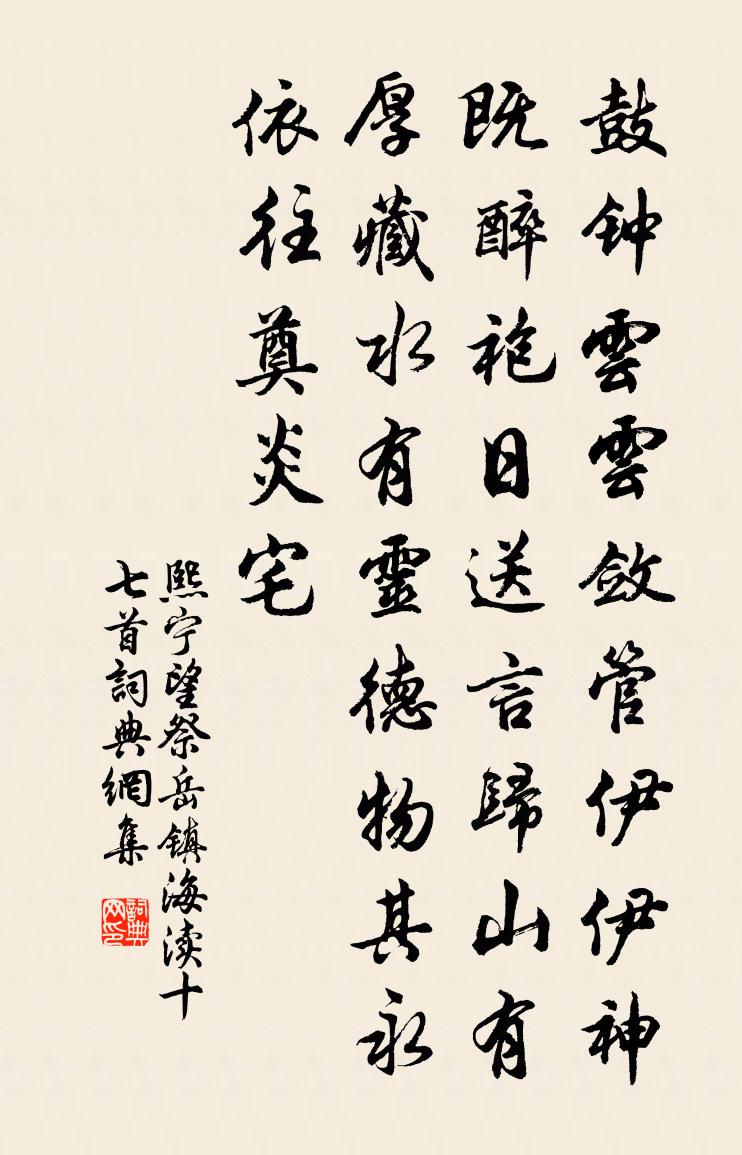 鼓钟雲雲敛管伊伊神
既醉袍日送言歸山有
厚藏水有靈德物其永
依往奠炎宅
熙宁望祭岳镇海渎十
七首詞典網集
詞典
网印